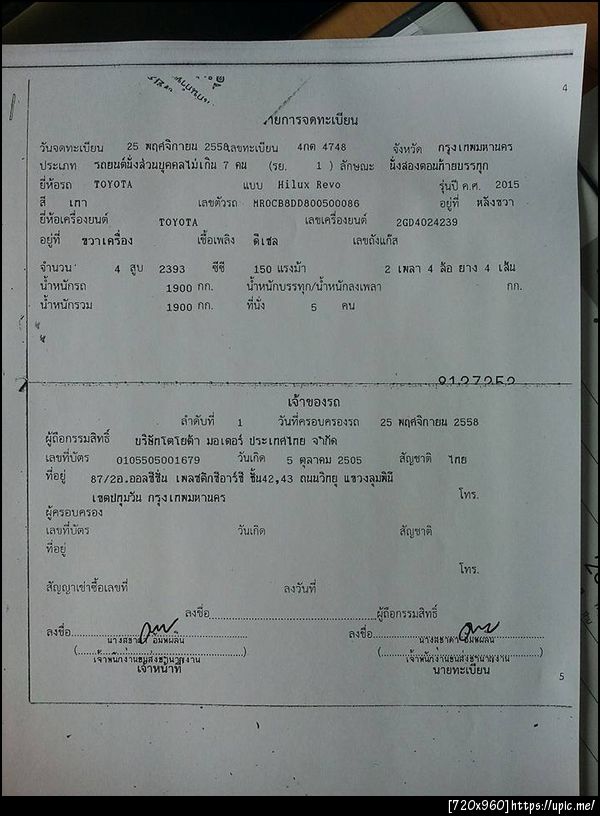 4
รายการจดทะเบียน
วันจดทะเบียน 25 พฤศจิกายน 2558 เลขทะเบียน 4กต 4748 จังหวัด กรุงเทพมหานคร
ประเภท รถยนต์นั่งส่วนบุคคลไม่เกิน 7 คน (รย. 1 ) ลักษณะ นั่งสองตอนท้ายบรรทุก
ยี่ห้อรถ TOYOTA แบบ Hilux Revo รุ่นปี ค.ศ. 2015
สี เทา เลขตัวรถ MR0CB8DD800500086 อยู่ที่ หลังขวา
ยี่ห้อเครื่องยนต์ TOYOTA เลขเครื่องยนต์ 2GD4024239
อยู่ที่ ขวาเครื่อง เชื้อเพลิง ดีเซล เลขถังแก๊ส
จำนวน 4 สูบ 2393 ซีซี 150 แรงม้า 2 เพลา 4 ล้อ ยาง 4 เส้น
น้ำหนักรถ 1900 กก. น้ำหนักบรรทุก/น้ำหนักลงเพลา กก.
น้ำหนักรวม 1900 กก. ที่นั่ง 5 คน
เจ้าของรถ
ลำดับที่ 1 วันที่ครอบครองรถ 25 พฤศจิกายน 2558
ผู้ถือกรรมสิทธิ์ บริษัทโตโยต้า มอเตอร์ ประเทศไทย จำกัด
เลขที่บัตร 0105505001679 วันเกิด 5 ตุลาคม 2505 สัญชาติ ไทย
ที่อยู่ 87/2อ.ออลซีซั่น เพลซตึกซีอาร์ซี ชั้น42,43 ถนนวิทยุ แขวงลุมพินี
เขตปทุมวัน กรุงเทพมหานคร โทร.
ผู้ครอบครอง
เลขที่บัตร วันเกิด สัญชาติ
ที่อยู่
โทร.
สัญญาเช่าซื้อเลขที่ ลงวันที่
ลงชื่อ ผู้ถือกรรมสิทธิ์
ลงชื่อ ลงชื่อ
เจ้าพนักงานขนส่งชำนาญงาน เจ้าพนักงานขนส่งชำนาญงาน
เจ้าหน้าที่ นายทะเบียน
5
[720x960]https://upic.me/